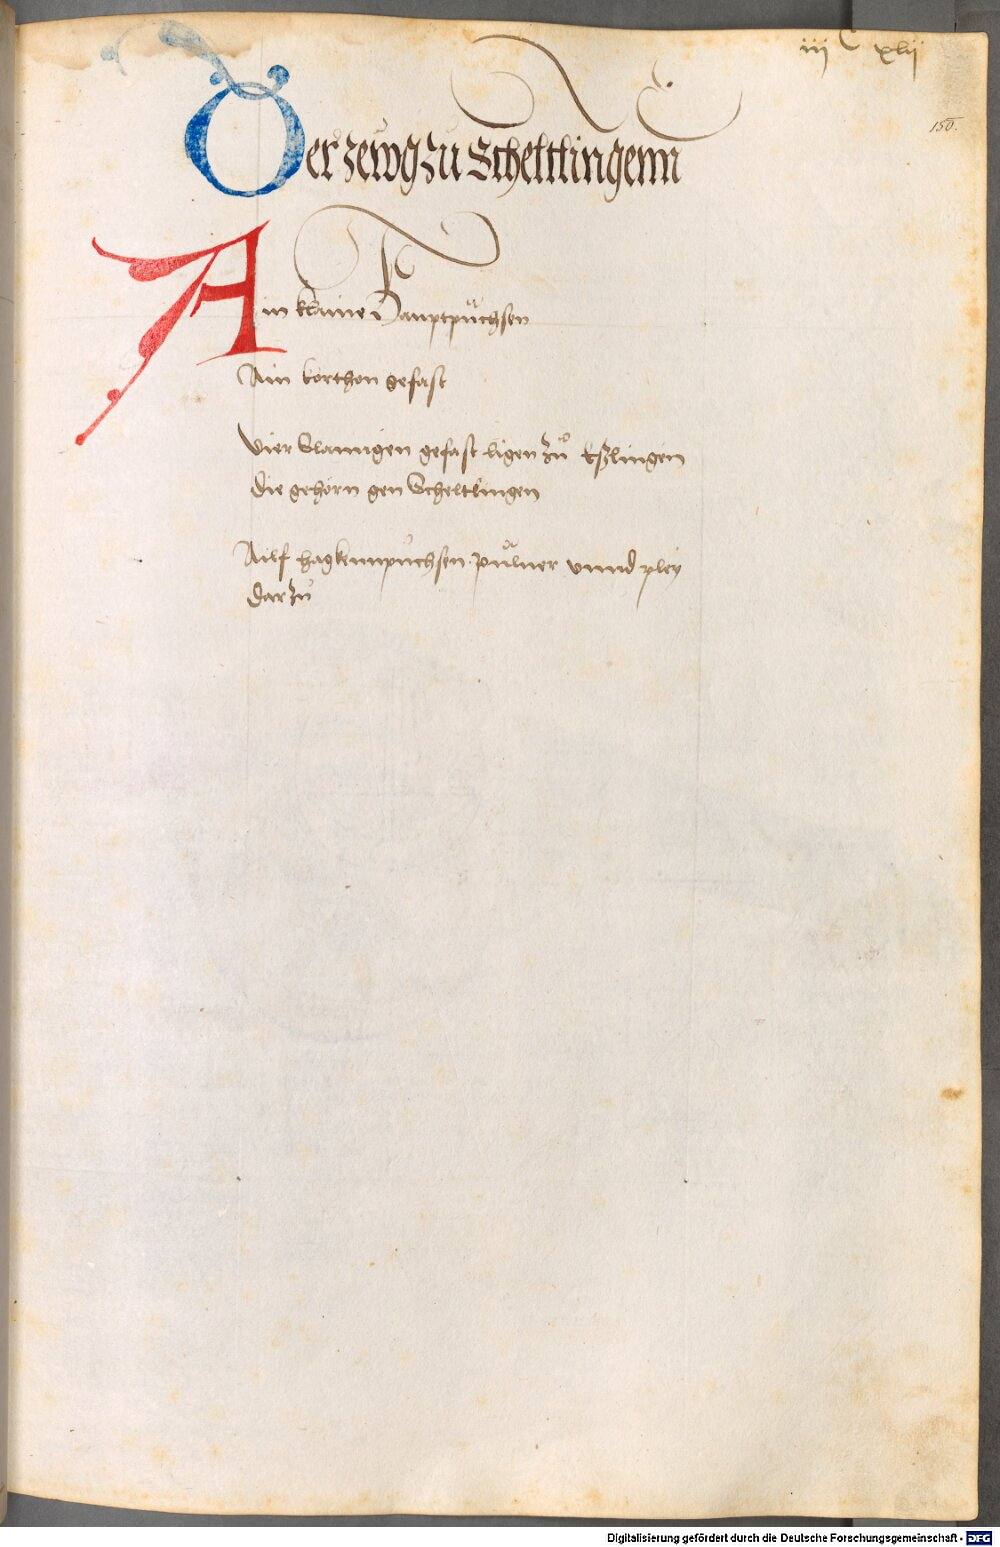 iij C xlij
150.
Der zewg zu Scheltlingenn
Ain klaine Hauptpüchsen
Ain korthon gefast
Vier Slanngen gefast ligen zů Eßlingen
die gehorn gen Scheltlingen
Ailf hagkennpüchsen pulver vnnd pley
darzů
Digitalisierung gefördert durch die Deutsche Forschungsgemeinschaft - DFG